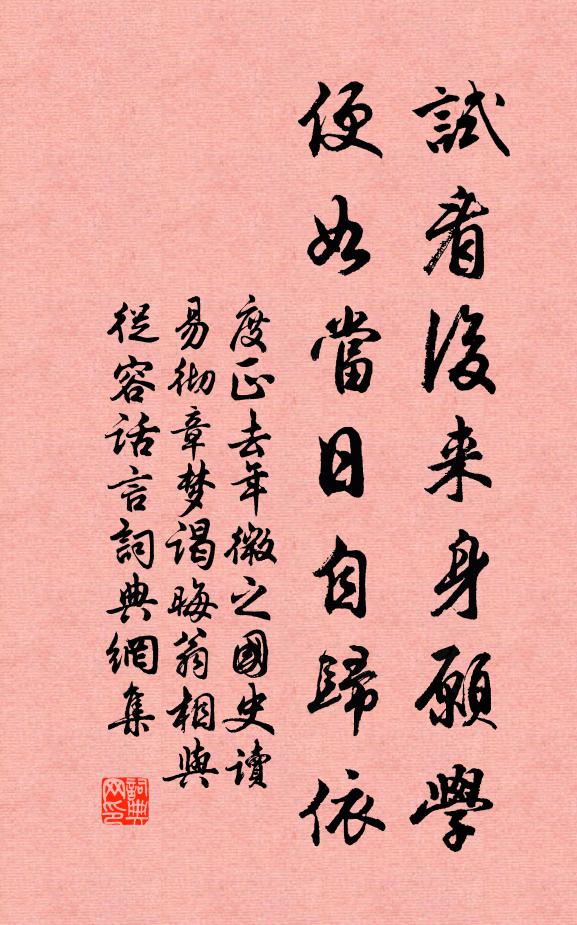 試看後来身願學
便如當日自歸依
度正去年徽之國史讀
易彻章梦谒晦翁相與
從容话言詞典網集
詞典网印